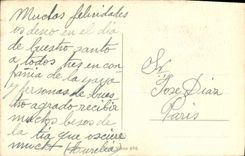 Muchas felicidades
os deseo en el dia
de buestro santo
a todos hay en com
pañia de la yaya
y personas de bues
tro agrado recibir
muchos besos de
la tia que os quiere
mucho Aurelia
Sr
Jose Diaz
Paris